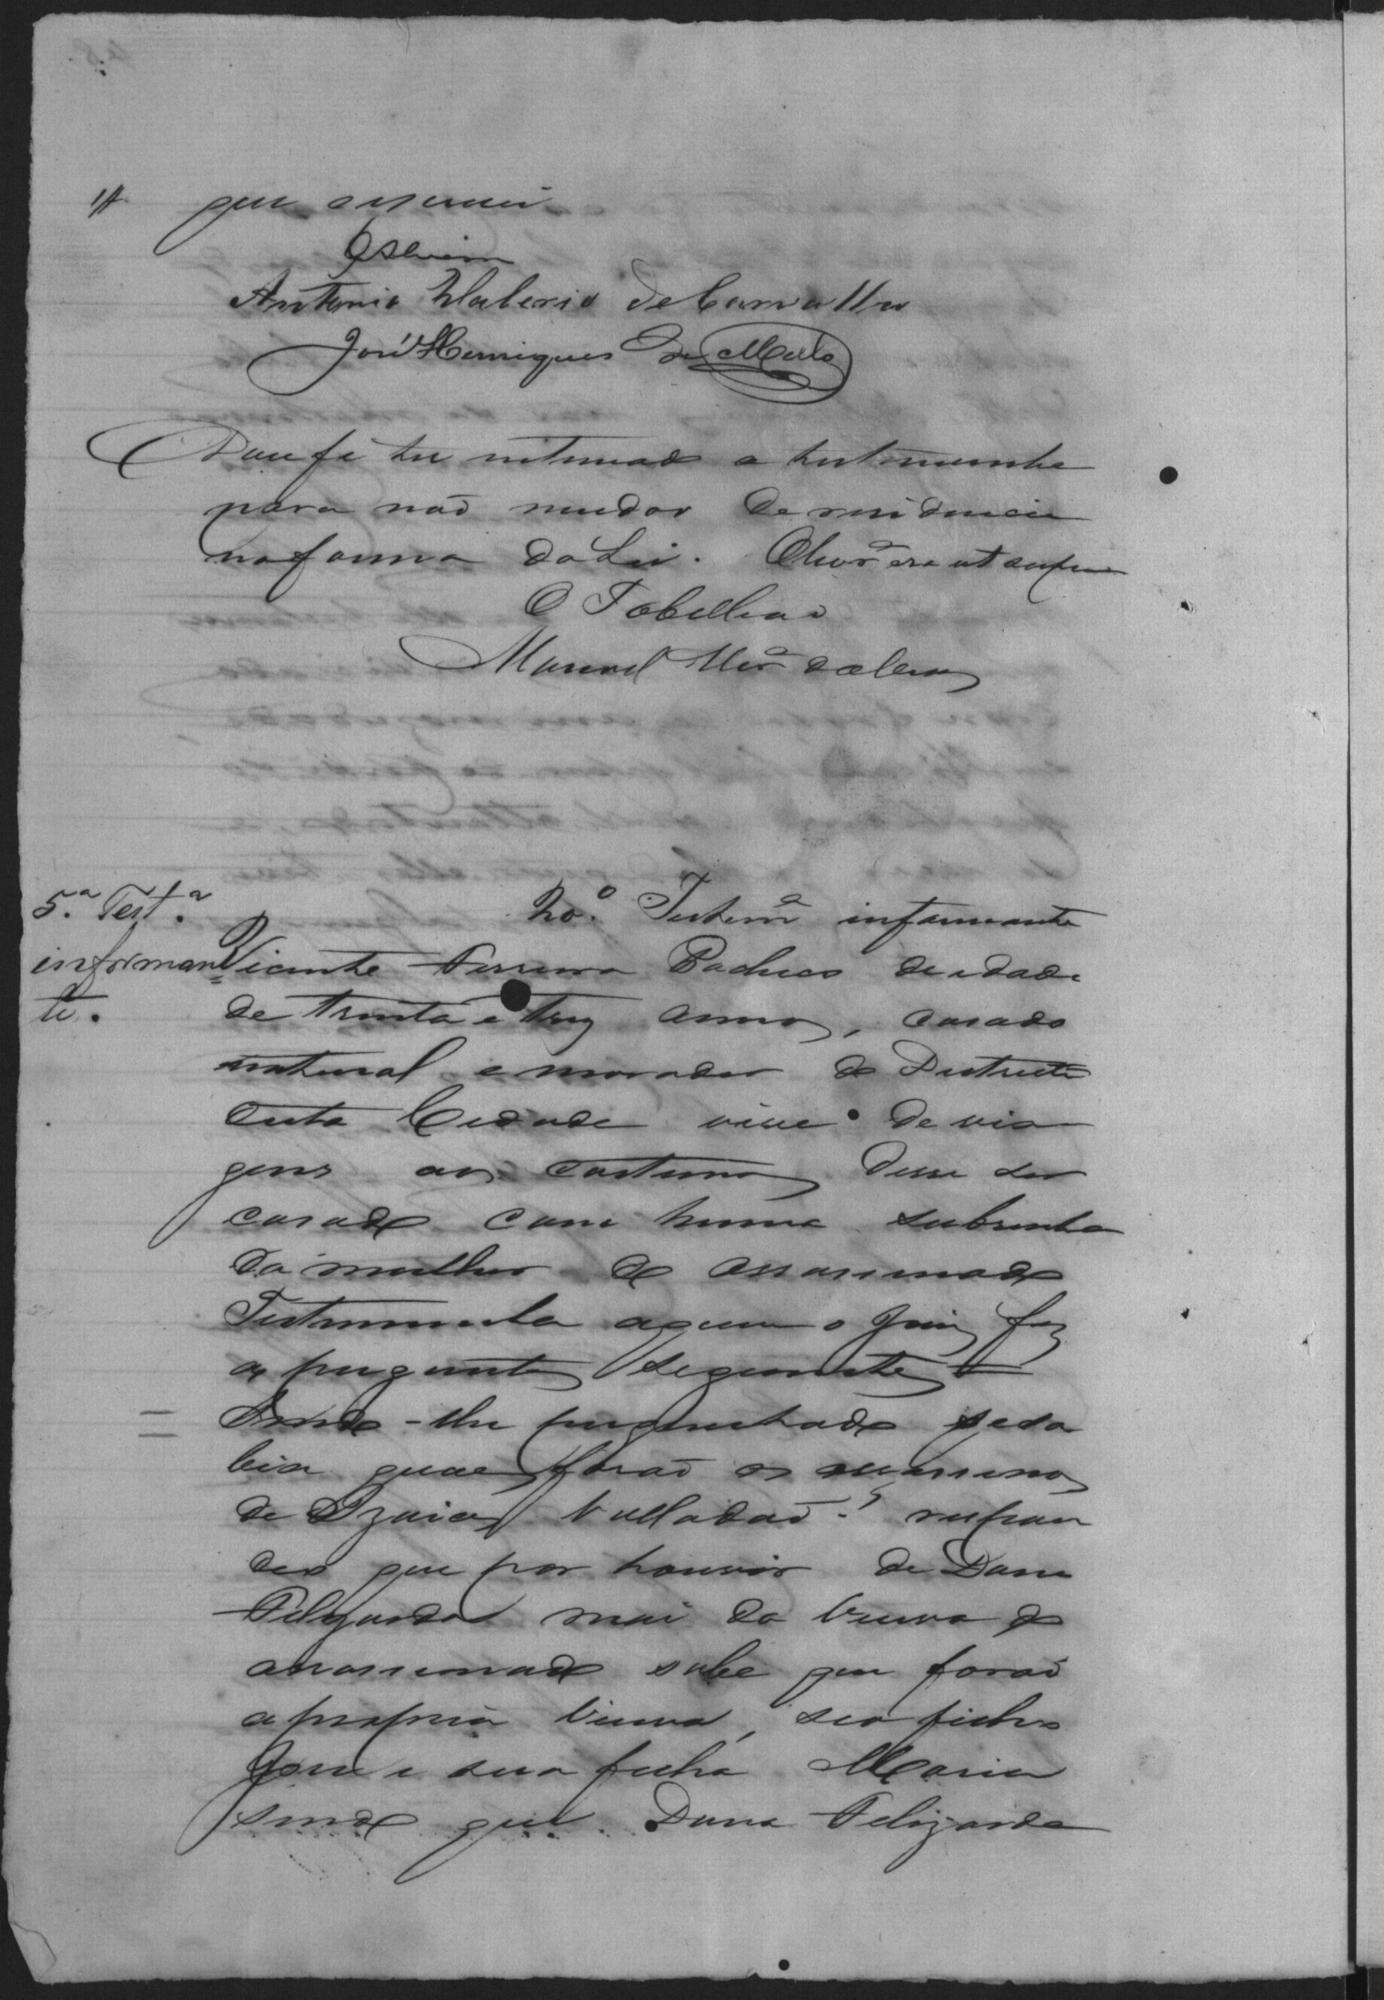 que escrevi
Antonio Valerio de Carvalho
José Henriques de Mello
Dou fé ter intimado a testemunha
para naõ mudar de residencia
na forma da Lei. era ut supra
O Tabelliaõ
Manoel
5.ª Test.ª
informan
te.
20.º Testemª informante
Vicente Ferreira Pacheco de idade
de trinta e trez annos, casado
natural e morador do Districto
desta Cidade vive de via
gens aos costumes disse ser
casado com huma subrinha
da mulher do assassinado
Testemunha aquem o Juiz fez
as perguntas seguintes
Sendo-lhe perguntado se sa
bia quaes foraõ os assassinos
de Izaias Valladaõ? respon
deo que por houvir de Dona
Felizarda mai da Viuva do
assassinado sabe que foraõ
a propria Viuva, seo filho
José e sua filha Maria
sendo que Dona Felizarda